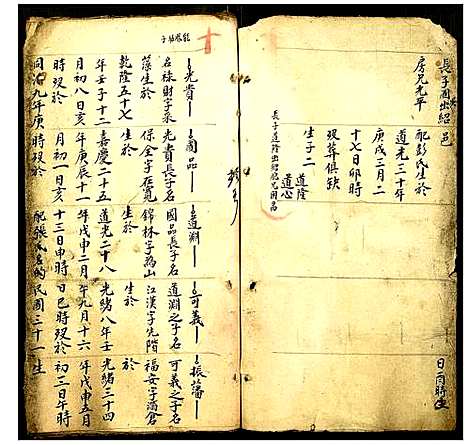 長子國出紹邑
房兄光平
配彭氏生於
道光三十年
庚戌三月二
十七日卯時
歿葬俱缺
生子二
道隆
道心
長子道隆出紹胞兄國品
日酉時生
光貴
名祿財字來
藻生於
乾隆五十七
年壬子十二
月初八日亥
時歿於
同治九年庚
國品
光貴長子名
保全字在寬
生於
嘉慶二十五
年庚辰十一
月初一日亥
時歿於
道淵
國品長子名
錦林字為山
生於
道光二十八
年戊申二月
十三日申時
配張氏名的
可義
道淵之子名
江漢字先階
生於
光緒八年壬
年九月十六
日巳時歿於
民國三十一
振藩
可義之子名
福安字滿倉
生於
光緒三十四
年戊申五月
初三日午時
生